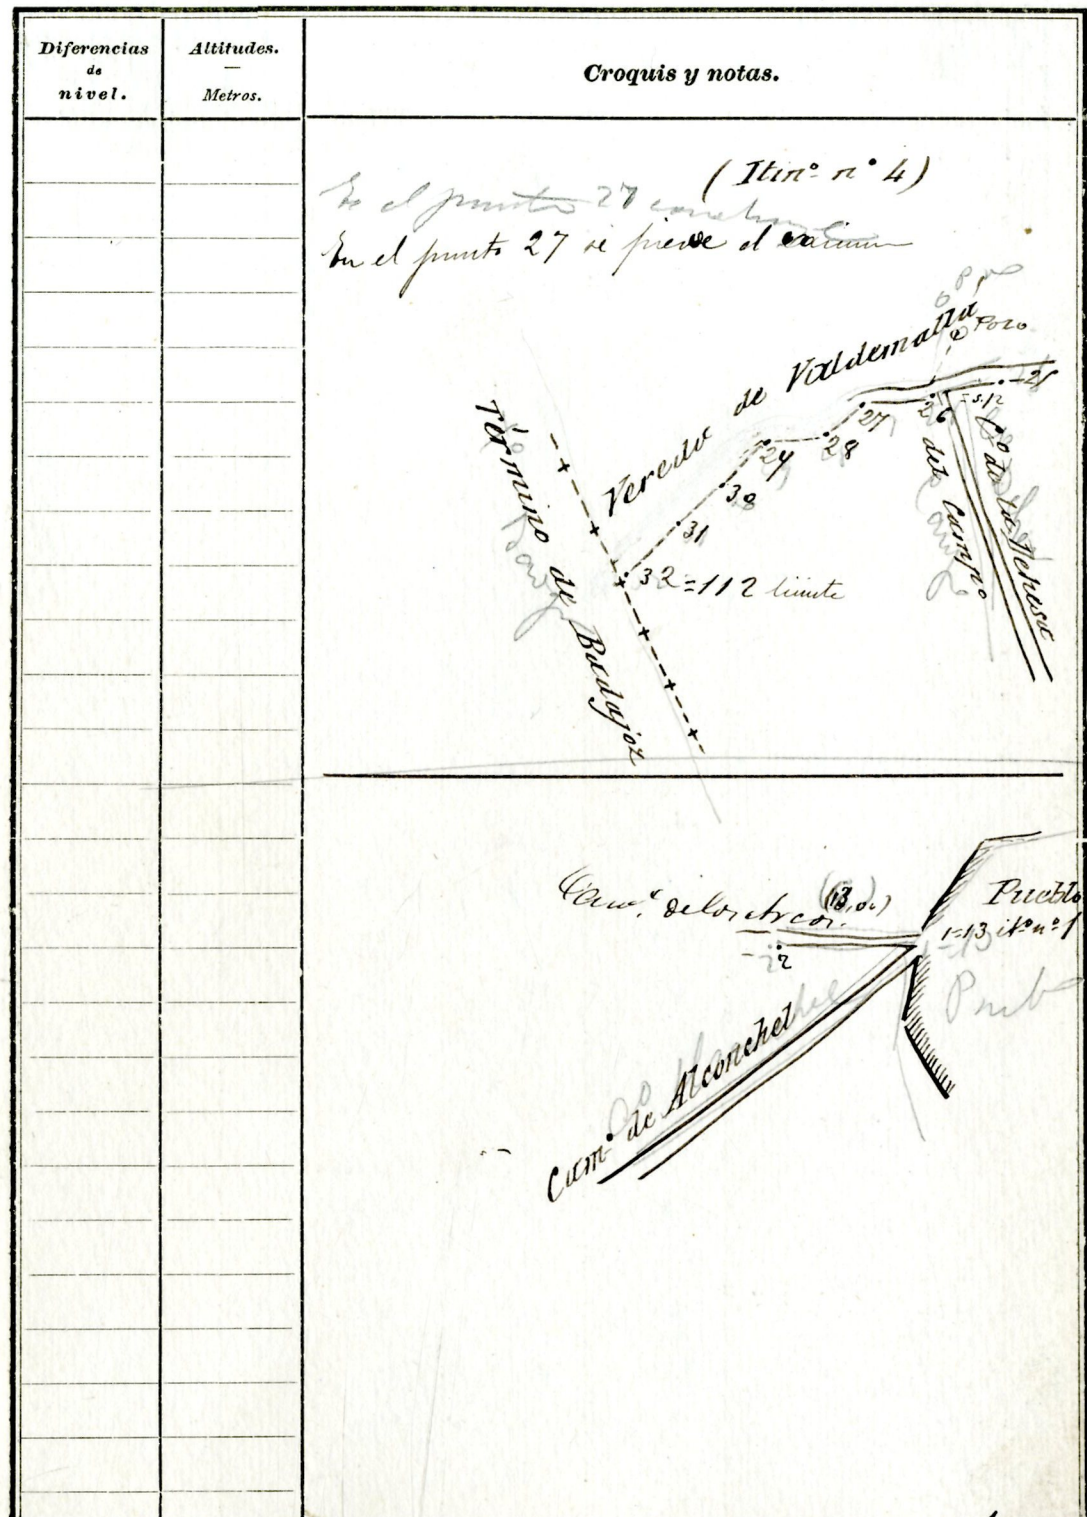 Diferencias
de
nivel.
Altitudes.
—
Metros.
Croquis y notas.
(Itinº nº 4)
En el punto 27
En el punto 27 se pierde el camino
Pozo
Vereda de Valdematta
25
26 = s.12
27
28
29
30
31
32 = 112 limite
Cº de la Dehesa
del Campo
Término de Badajoz
Camº de los Arcos.
(13,0.)
2
Pueblo
1=13 itº nº 1
Camº de Alconchel